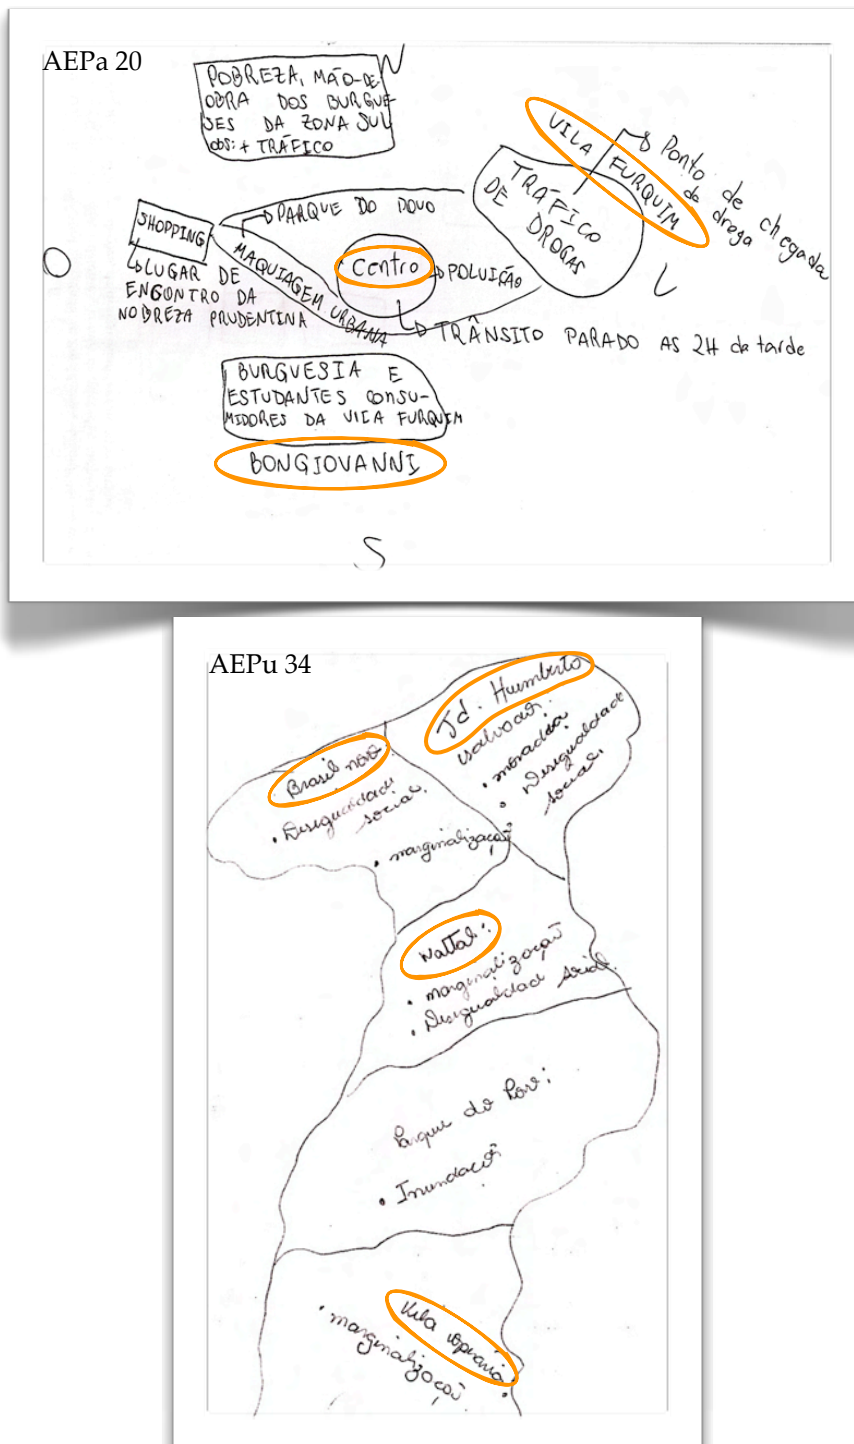 AEPa 20
N
POBREZA, MÃO-DE-
OBRA DOS BURGUE-
SES DA ZONA SUL
obs: + TRÁFICO
VILA FURQUIM
Ponto de chegada
da droga
TRÁFICO
DE DROGAS
SHOPPING
PARQUE DO POVO
LUGAR DE
ENCONTRO DA
NOBREZA PRUDENTINA
MAQUIAGEM URBANA
Centro
POLUIÇÃO
O
L
TRÂNSITO PARADO AS 2H da tarde
BURGUESIA E
ESTUDANTES CONSU-
MIDORES DA VILA FURQUIM
BONGIOVANNI
S
AEPu 34
Jd. Humberto
Salvador.
• moradia
• Desigualdade
social.
Brasil novo
• Desigualdade
social.
• marginalização
• marginalização
• Desigualdad social.
Parque do Povo:
• Inundação
Vila operária
• marginalização